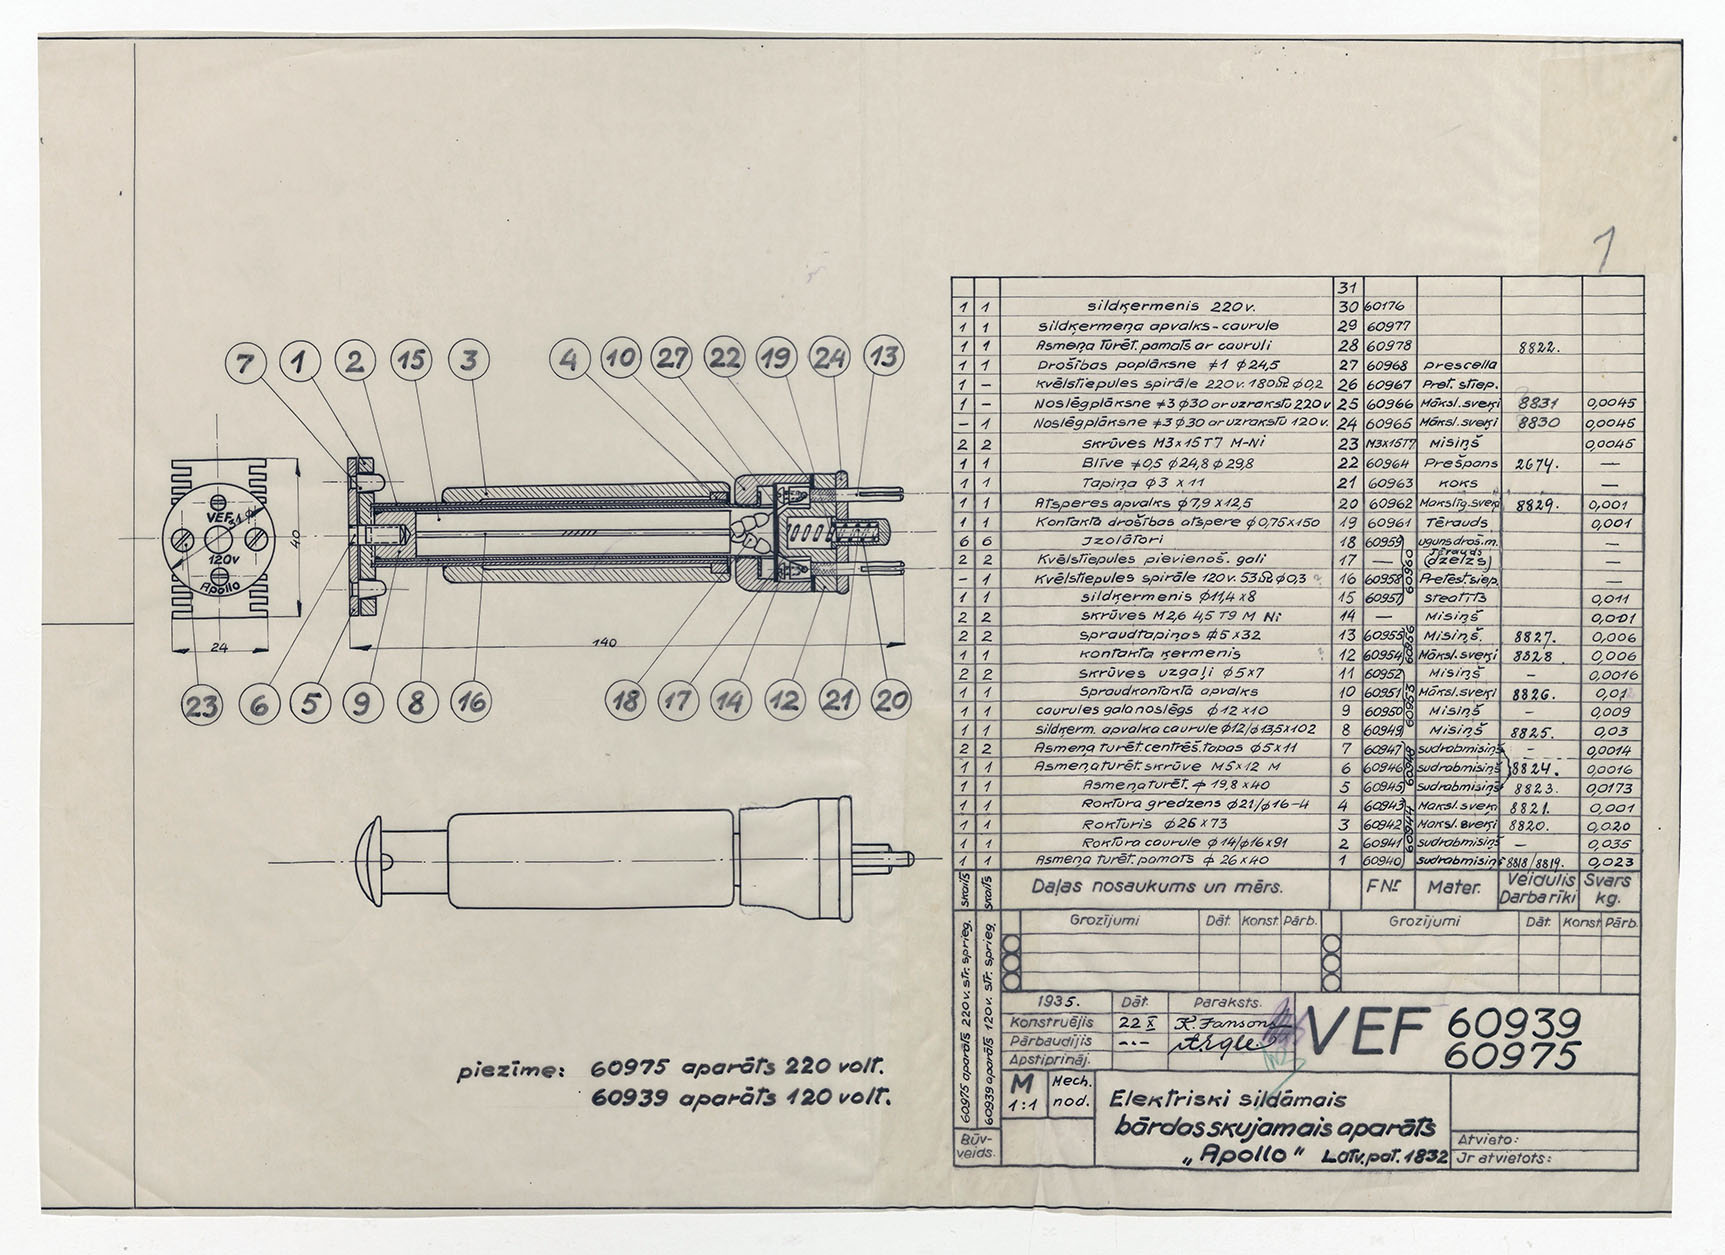 1
7 1 2 15 3 4 10 27 22 19 24 13
VEF
31 φ
120v
Apollo
40
24
140
23 6 5 9 8 16 18 17 14 12 21 20
piezīme: 60975 aparāts 220 volt.
60939 aparāts 120 volt.
31
1 1 sildķermenis 220v. 30 60176
1 1 sildķermeņa apvalks-caurule 29 60977
1 1 Asmeņa turēt. pamats ar cauruli 28 60978 8822.
1 1 Drošības poplāksne ≠1 φ24,5 27 60968 prescella
1 - kvēlstiepules spirāle 220v. 180Ω φ0,2 26 60967 Pret. stiep.
1 - Noslēgplāksne ≠3 φ30 ar uzrakstu 220v 25 60966 Māksl. sveķi 8831 0,0045
- 1 Noslēgplāksne ≠3 φ30 ar uzrakstu 120v. 24 60965 Māksl. sveķi 8830 0,0045
2 2 skrūves M3x15 T7 M-Ni 23 M3x15T7 Misiņš 0,0045
1 1 Blīve ≠0,5 φ24,8 φ29,8 22 60964 Prešpans 2674. —
1 1 Tapiņa φ3 x 11 21 60963 koks —
1 1 Atsperes apvalks φ7,9 x 12,5 20 60962 Makslīg. sveķi 8829. 0,001
1 1 Kontakta drošības atspere φ0,75x150 19 60961 Tērauds 0,001
6 6 Jzolātori 18 60959 uguns droš. m. —
2 2 Kvēlstiepules pievienoš. gali 17 — Tērauds (dzelzs) —
- 1 Kvēlstiepules spirāle 120v. 53Ω φ0,3 16 60958 60960 —
1 1 sildķermenis φ11,4 x 8 15 60957 steatīts 0,011
2 2 skrūves M2,6 4,5 T9 M Ni 14 — Misiņš 0,001
2 2 spraudtapiņas φ5 x 32 13 60955 60956 Misiņš. 8827. 0,006
1 1 kontakta ķermenis 12 60954 Māksl. sveķi 8828 0,006
2 2 skrūves uzgaļi φ5x7 11 60952 Misiņš - 0,0016
1 1 Spraudkontakta apvalks 10 60951 60953 Māksl. sveķi 8826. 0,01
1 1 caurules gala noslēgs φ12 x 10 9 60950 Misiņš - 0,009
1 1 sildķerm. apvalka caurule φ12/φ13,5x102 8 60949 Misiņš 8825. 0,03
2 2 Asmeņa turēt. centrēš. tapas φ5x11 7 60947 60948 sudrabmisiņš - 0,0014
1 1 Asmeņa turēt. skrūve M5x12 M 6 60946 sudrabmisiņš 8824. 0,0016
1 1 Asmeņa turēt. ≠ 19,8 x40 5 60945 sudrabmisiņš 8823. 0,0173
1 1 Roktura gredzens φ21/φ16-4 4 60943 Maksl. sveķi 8821. 0,001
1 1 Rokturis φ26 x 73 3 60942 60944 Maksl. sveķi 8820. 0,020
1 1 Roktura caurule φ14/φ16x91 2 60941 sudrabmisiņš - 0,035
1 1 Asmeņa turēt. pamats ≠ 26 x40 1 60940 sudrabmisiņš 8818/8819. 0,023
skaits skaits Daļas nosaukums un mērs. F Nr Mater. Veidulis Darbarīki Svars kg.
60975 aparāts 220v. str. sprieg.
60939 aparāts 120v. str. sprieg.
Grozījumi Dāt. Konst. Pārb. Grozījumi Dāt. Konst. Pārb.
1935. Dāt. Paraksts.
Konstruējis 22 X K. Jansons
Pārbaudījis -·-
Apstiprināj.
VEF 60939
60975
M 1:1 Mech. nod.
Elektriski sildāmais
bārdas skujamais aparāts
„Apollo" Latv. pat. 1832
Būv-
veids.
Atvieto:
Jr atvietots: